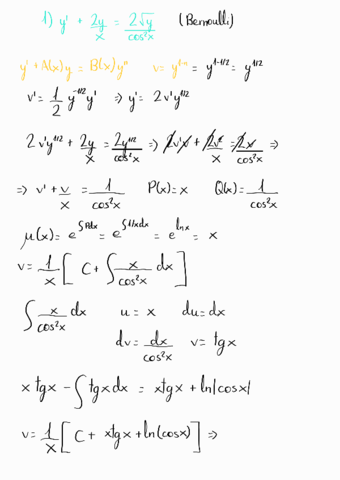 1) y' + 2y/x = 2√y/cos²x (Bernoulli)
y' + A(x)y = B(x)yⁿ v = y¹⁻ⁿ = y¹⁻¹ᐟ² = y¹ᐟ²
v' = 1/2 y⁻¹ᐟ² y' => y' = 2v'y¹ᐟ²
2v'y¹ᐟ² + 2y/x = 2y¹ᐟ²/cos²x => 2v'v + 2v²/x = 2v/cos²x =>
=> v' + v/x = 1/cos²x P(x) = x Q(x) = 1/cos²x
μ(x) = e^∫Pdx = e^∫1/x dx = e^lnx = x
v = 1/x [ C + ∫ x/cos²x dx ]
∫ x/cos²x dx u = x du = dx
dv = dx/cos²x v = tgx
x tgx - ∫ tgx dx = xtgx + ln|cosx|
v = 1/x [ C + xtgx + ln(cosx) ] =>